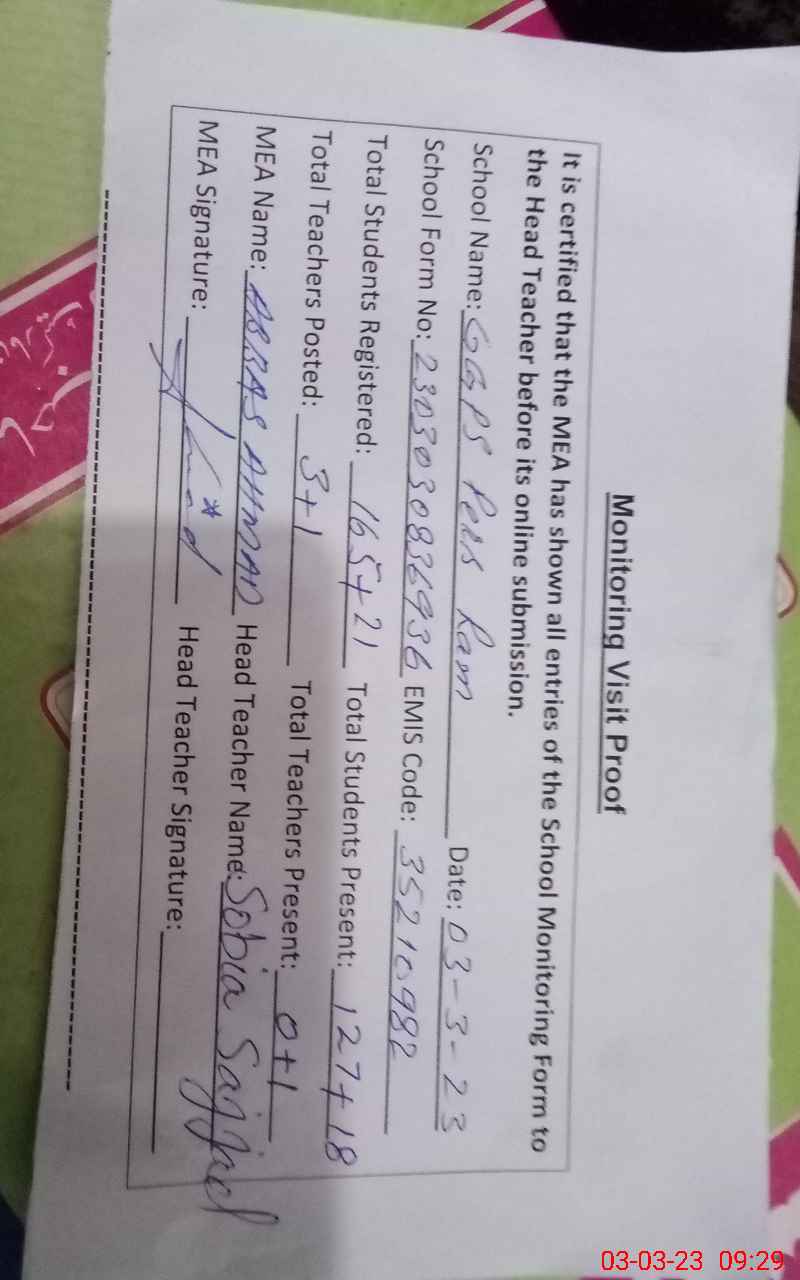 Monitoring Visit Proof
It is certified that the MEA has shown all entries of the School Monitoring Form to
the Head Teacher before its online submission.
School Name: GGPS Peer Ram Date: 03-3-23
School Form No: 2303030836936 EMIS Code: 35210982
Total Students Registered: 165+21 Total Students Present: 127+18
Total Teachers Posted: 3+1 Total Teachers Present: 0+1
MEA Name: ABBAS AHMAD Head Teacher Name: Sobia Sajjad
MEA Signature: Head Teacher Signature:
03-03-23 09:29